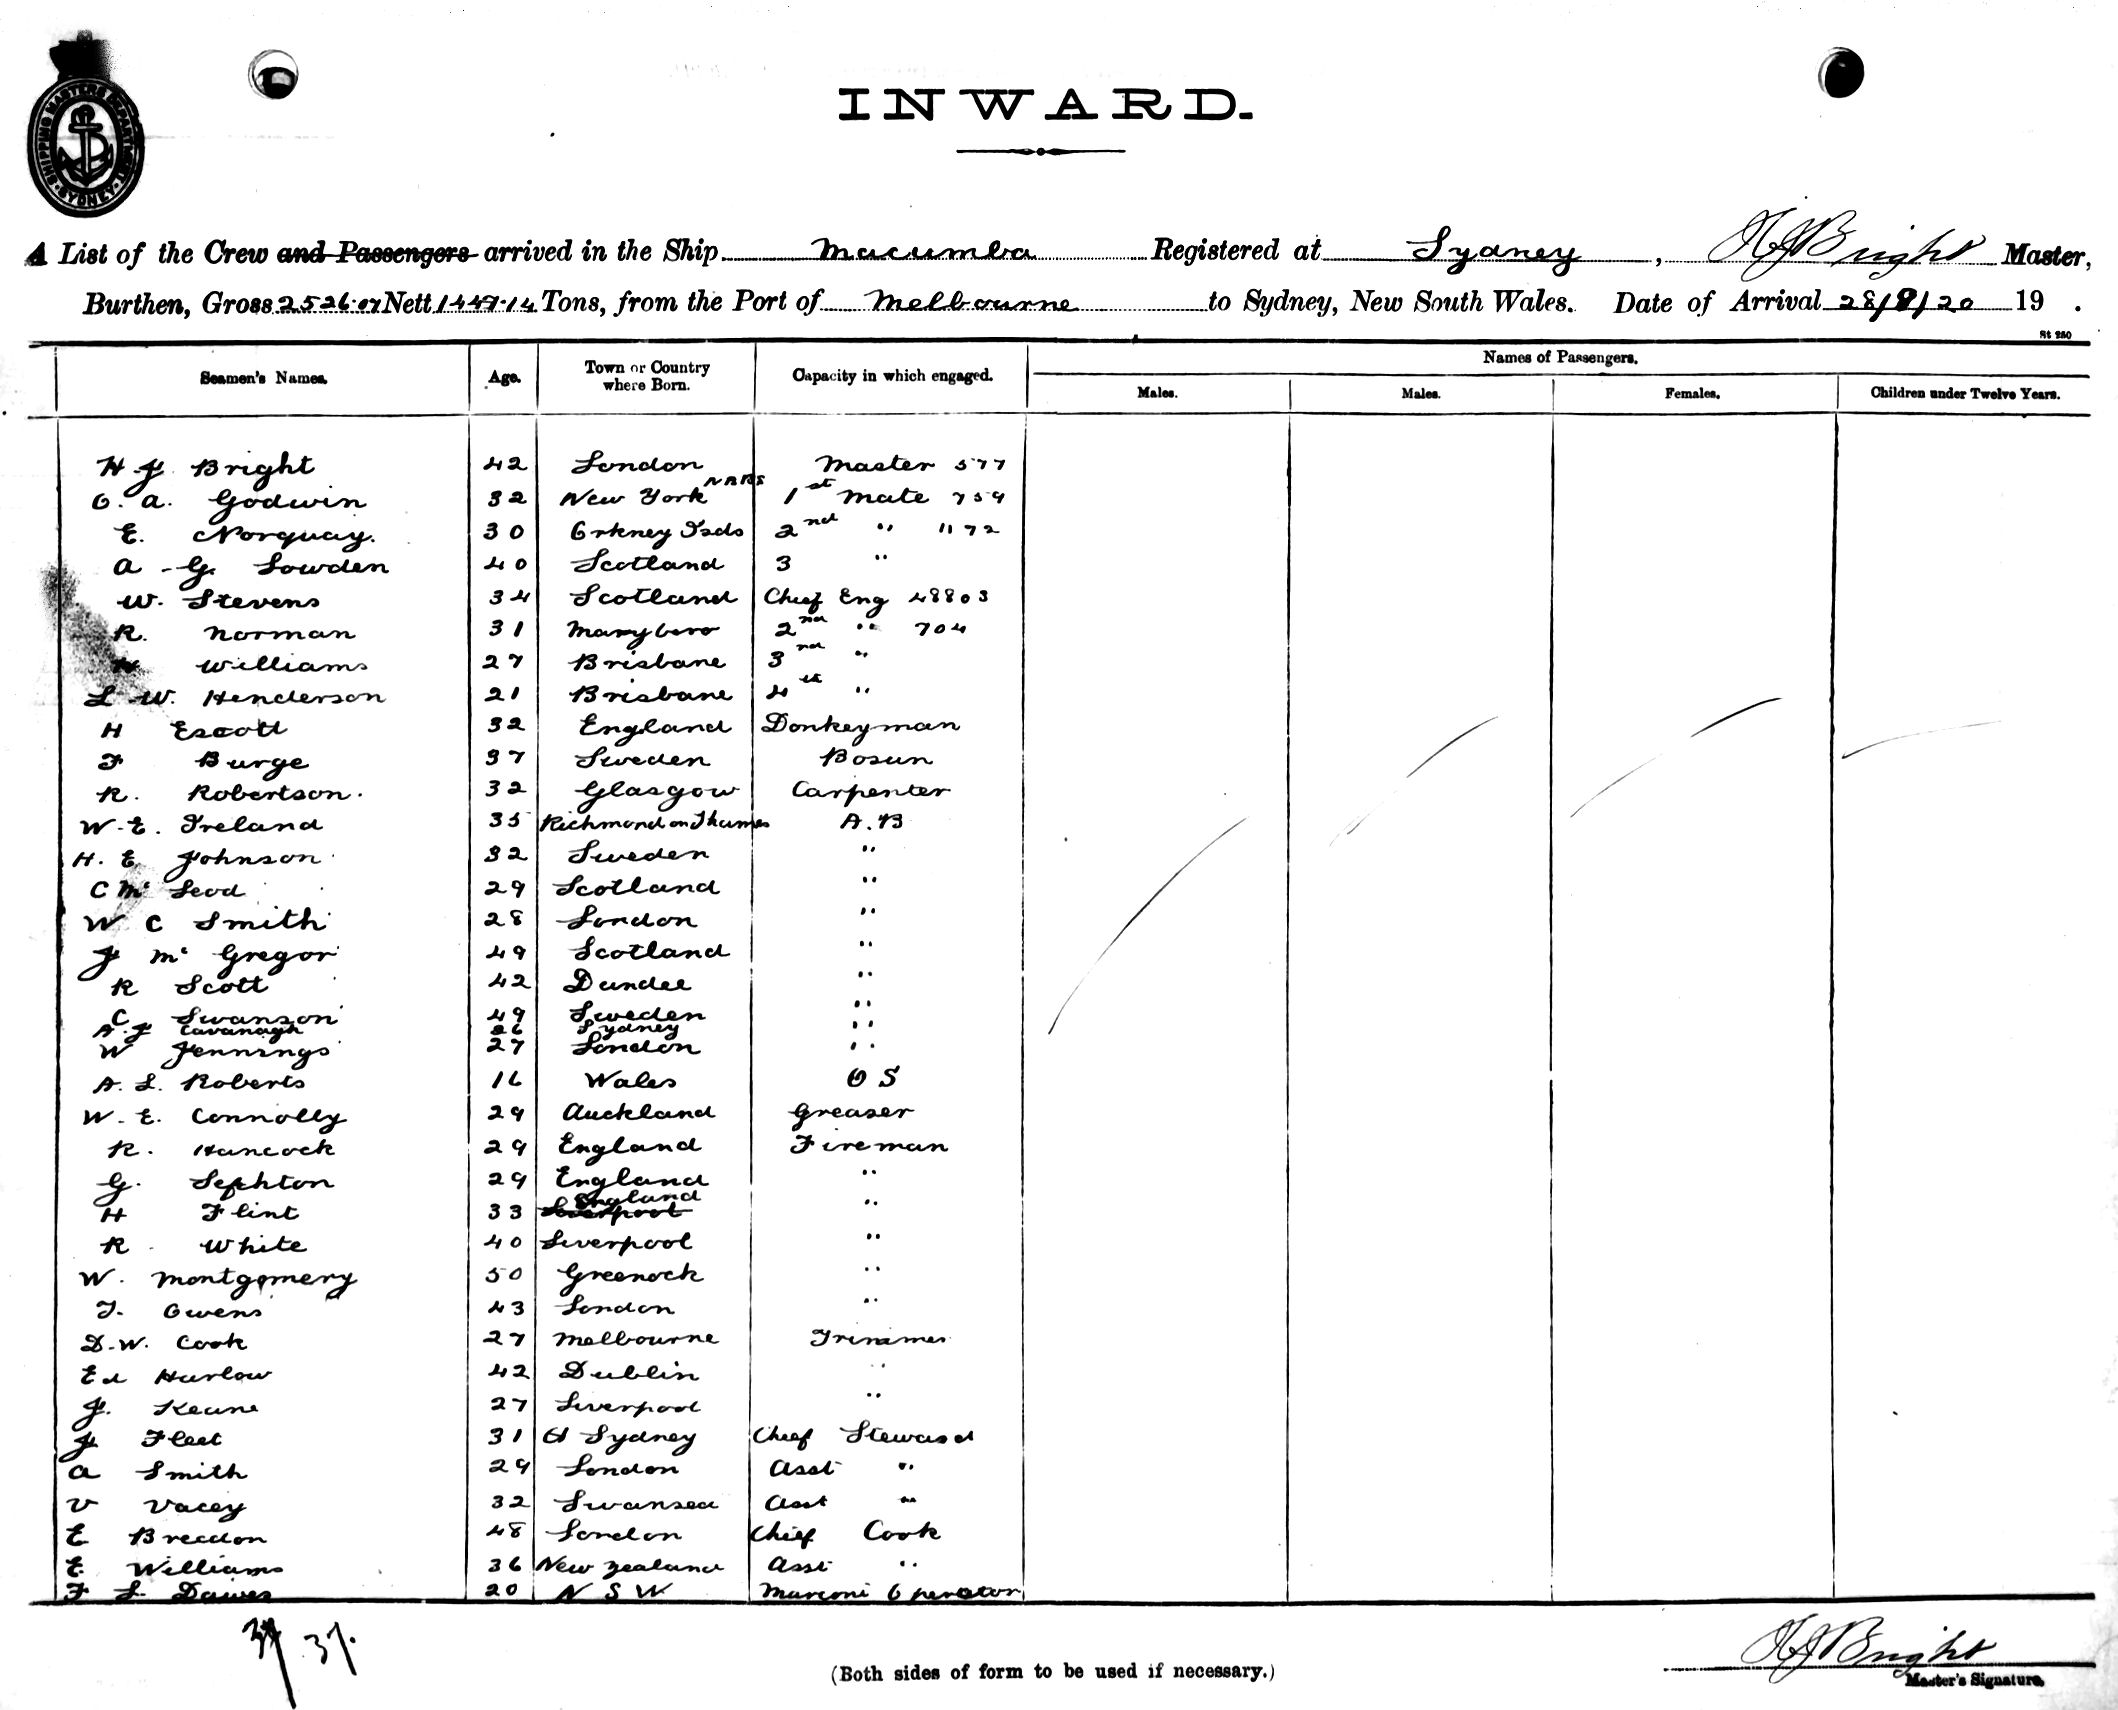 SHIPPING MASTERS DEPARTMENT SYDNEY
INWARD.
A List of the Crew and Passengers arrived in the Ship Macumba Registered at Sydney, H J Bright Master,
Burthen, Gross 2526.07 Nett 1447.14 Tons, from the Port of Melbourne to Sydney, New South Wales. Date of Arrival 28/8/20 19 .
St 250
Seamen's Names. Age. Town or Country where Born. Capacity in which engaged. Names of Passengers.
Males. Males. Females. Children under Twelve Years.
H J Bright 42 London Master 577
O. A. Godwin 32 New York 1st Mate 759
E. Norquay. 30 Orkney Isds 2nd " 1172
A - G. Lowden 40 Scotland 3 "
W. Stevens 34 Scotland Chief Eng 48803
R. Norman 31 Maryboro 2nd " 704
Williams 27 Brisbane 3rd "
L W. Henderson 21 Brisbane 4th "
H Escott 32 England Donkeyman
F Burge 37 Sweden Bosun
R. Robertson. 32 Glasgow Carpenter
W. E. Ireland 35 Richmond on Thames A.B
H. E. Johnson 32 Sweden "
C Mc Leod 29 Scotland "
W C Smith 28 London "
J Mc Gregor 49 Scotland "
R Scott 42 Dundee "
C Swanson 49 Sweden "
A. J Cavanagh 26 Sydney "
W Jennings 27 London "
A. L. Roberts 16 Wales O S
W. E. Connolly 29 Auckland Greaser
R. Hancock 29 England Fireman
G. Sephton 29 England "
H Flint 33 Liverpool England "
R White 40 Liverpool "
W. Montgomery 50 Greenock "
T. Owens 43 London "
D. W. Cook 27 Melbourne Trimmer
Ed Harlow 42 Dublin "
J. Keane 27 Liverpool "
J Fleet 31 Sydney Chief Steward
A Smith 29 London Asst "
V Vacey 32 Swansea Asst "
E Breedon 48 London Chief Cook
E. Williams 36 New Zealand Asst "
F L Dawes 20 N S W Marconi Operator
37 37.
(Both sides of form to be used if necessary.)
H J Bright
Master's Signature.